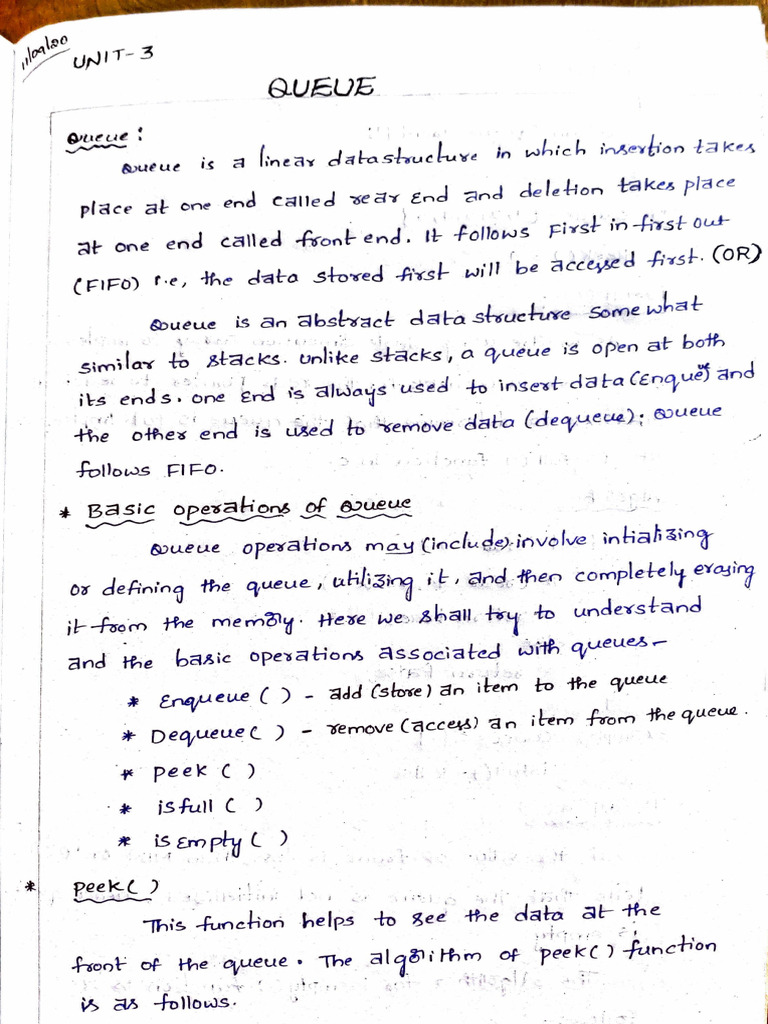 11/09/20
UNIT-3
QUEUE
Queue:
Queue is a linear datastructure in which insertion takes
place at one end called rear end and deletion takes place
at one end called front end. It follows First in first out
(FIFO) i.e, the data stored first will be accessed first. (OR)
Queue is an abstract data structure some what
similar to stacks. unlike stacks, a queue is open at both
its ends. one end is always used to insert data (Enqueue) and
the other end is used to remove data (dequeue); Queue
follows FIFO.
* Basic operations of Queue
Queue operations may (include) involve intializing
or defining the queue, utilizing it, and then completely erasing
it from the memory. Here we shall try to understand
and the basic operations associated with queues-
* Enqueue ( ) - add (store) an item to the queue
* Dequeue ( ) - remove (access) an item from the queue.
* peek ( )
* isfull ( )
* is Empty ( )
* peek ( )
This function helps to see the data at the
front of the queue. The algorithm of peek( ) function
is as follows.